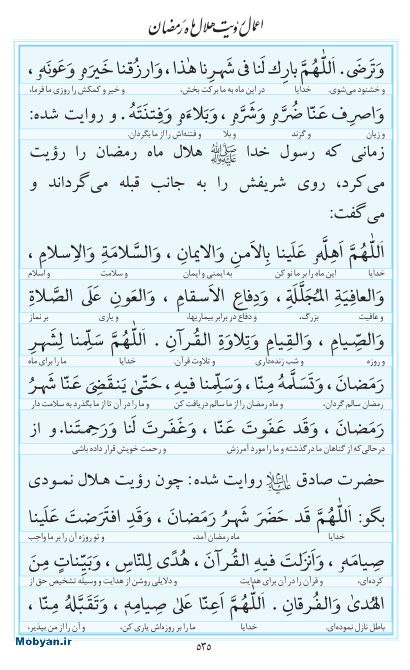 اعمال رؤیت هلال ماه رمضان
وَتَرضَی . اَللّٰهُمَّ بارِك لَنا فی شَهرِنا هٰذا ، وَارزُقنا خَیرَهُ وَعَونَهُ ،
و خشنود می‌شوی. خدایا در این ماه به ما برکت بخش، و خیر و کمکش را روزی ما فرما،
وَاصرِف عَنّا ضُرَّهُ وَشَرَّهُ ، وَبَلاءَهُ وَفِتنَتَهُ . و روایت شده:
و زیان و گزند و بلا و فتنه‌اش را از ما بگردان.
زمانی که رسول خدا ﷺ هلال ماه رمضان را رؤیت
می‌کرد، روی شریفش را به جانب قبله می‌گرداند و
می‌گفت:
اَللّٰهُمَّ اَهِلَّهُ عَلَینا بِالاَمنِ وَالایمانِ ، وَالسَّلامَةِ وَالاِسلامِ ،
خدایا این ماه را بر ما نو کن به ایمنی و ایمان و سلامت و اسلام
وَالعافِیَةِ المُجَلَّلَةِ ، وَدِفاعِ الاَسقامِ ، وَالعَونِ عَلَی الصَّلاةِ
و عافیت بزرگ، و دفاع در برابر بیماریها، و یاری بر نماز
وَالصِّیامِ ، وَالقِیامِ وَتِلاوَةِ القُرآنِ . اَللّٰهُمَّ سَلِّمنا لِشَهرِ
و روزه و شب زنده‌داری و تلاوت قرآن. خدایا ما را برای ماه
رَمَضانَ ، وَتَسَلَّمهُ مِنّا ، وَسَلِّمنا فیهِ ، حَتّیٰ یَنقَضِیَ عَنّا شَهرُ
رمضان سالم گردان، و ماه رمضان را از ما سالم دریافت کن و ما را در آن تا از ما بگذرد به سلامت دار
رَمَضانَ ، وَقَد عَفَوتَ عَنّا ، وَغَفَرتَ لَنا وَرَحِمتَنا. و از
درحالی‌که از گناهان ما درگذشته و ما را مورد آمرزش و رحمت خویش قرار داده باشی
حضرت صادق روایت شده: چون رؤیت هلال نمودی
بگو: اَللّٰهُمَّ قَد حَضَرَ شَهرُ رَمَضانَ ، وَقَدِ افتَرَضتَ عَلَینا
خدایا ماه رمضان آمد، و تو روزه آن را بر ما واجب
صِیامَهُ ، وَاَنزَلتَ فیهِ القُرآنَ ، هُدًی لِلنّاسِ ، وَبَیِّناتٍ مِنَ
کرده‌ای، و قرآن را در آن برای هدایت و دلایلی روشن از هدایت و وسیله تشخیص حق از
الهُدیٰ وَالفُرقانِ . اَللّٰهُمَّ اَعِنّا عَلیٰ صِیامِهِ ، وَتَقَبَّلهُ مِنّا ،
باطل نازل نموده‌ای. خدایا ما را بر روزه‌اش یاری کن، و آن را از من بپذیر،
Mobyan.ir
۵۳۵